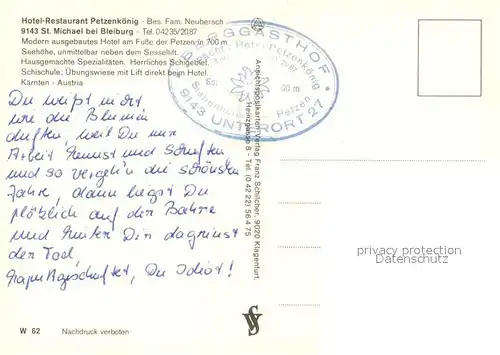 Hotel-Restaurant Petzenkönig - Bes. Fam. Neubersch
9143 St. Michael bei Bleiburg - Tel. 04235/2087
Modern ausgebautes Hotel am Fuße der Petzen in 700 m
Seehöhe, unmittelbar neben dem Sessellift.
Hausgemachte Spezialitäten. Herrliches Schigebiet.
Schischule; Übungswiese mit Lift direkt beim Hotel.
Kärnten - Austria
BERGGASTHOF
Petzenkönig
Petzen
9143 UNTERORT 27
Du weißt nicht
wie die Blumen
duften, weil Du nur
Arbeit kennst und schuften
und so vergeh'n die schönsten
Jahre, dann liegst Du
plötzlich auf der Bahre
und hinter Dir da grinst
der Tod,
kaputtgeschuftet, Du Idiot!
Ansichtspostkarten-Verlag Franz Schilcher, 9020 Klagenfurt,
Heinzgasse 8 - Tel. (0 42 22) 56 4 75
privacy protection
Datenschutz
W 62 Nachdruck verboten